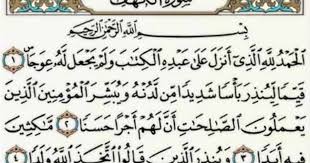 سُورَةُ الكَهْفِ
بِسْمِ اللَّهِ الرَّحْمَٰنِ الرَّحِيمِ
الْحَمْدُ لِلَّهِ الَّذِي أَنزَلَ عَلَىٰ عَبْدِهِ الْكِتَابَ وَلَمْ يَجْعَل لَّهُ عِوَجَا ۜ ١
قَيِّمًا لِّيُنذِرَ بَأْسًا شَدِيدًا مِّن لَّدُنْهُ وَيُبَشِّرَ الْمُؤْمِنِينَ الَّذِينَ
يَعْمَلُونَ الصَّالِحَاتِ أَنَّ لَهُمْ أَجْرًا حَسَنًا ٢ مَّاكِثِينَ
فِيهِ أَبَدًا ٣ وَيُنذِرَ الَّذِينَ قَالُوا اتَّخَذَ اللَّهُ وَلَدًا ٤